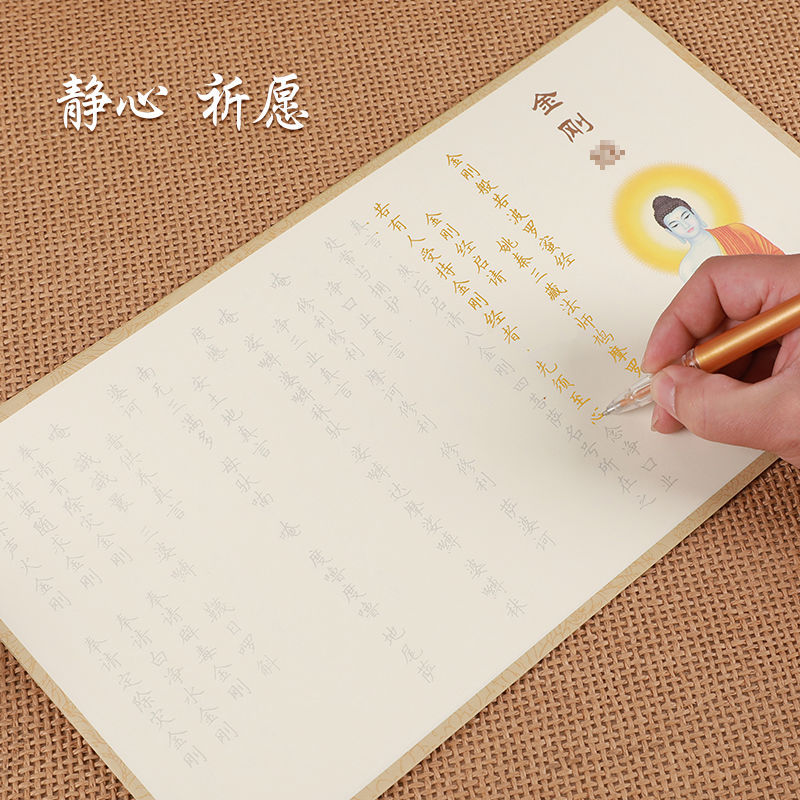 静心 祈愿
金刚
金刚般若波罗蜜经
姚秦三藏法师鸠摩罗
金刚经启请
若有人受持金刚经者 先须至心念净口业
真言 然后启请八金刚四菩萨名号所在之
处常当拥护
净口业真言
修利修利 摩诃修利 修修利 萨婆诃
净三业真言
唵 娑嚩 娑嚩达摩娑嚩 婆嚩秫
度憾
安土地真言
南无三满多 母驮喃 唵 度噜度噜 地尾萨
婆诃
普供养真言
唵 誐誐曩 三婆嚩 韈日啰斛
奉请青除灾金刚 奉请辟毒金刚
奉请黄随求金刚 奉请白净水金刚
声火金刚 奉请定除灾金刚